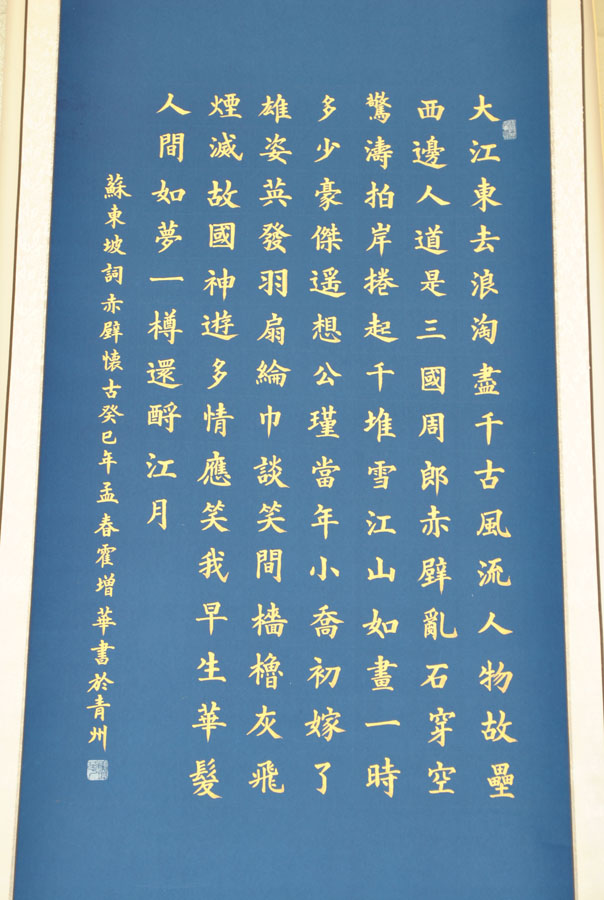 大江東去浪淘盡千古風流人物故壘
西邊人道是三國周郎赤壁亂石穿空
驚濤拍岸捲起千堆雪江山如畫一時
多少豪傑遥想公瑾當年小喬初嫁了
雄姿英發羽扇綸巾談笑間檣櫓灰飛
煙滅故國神遊多情應笑我早生華髮
人間如夢一樽還酹江月
蘇東坡詞赤壁懷古癸巳年孟春霍增華書於青州